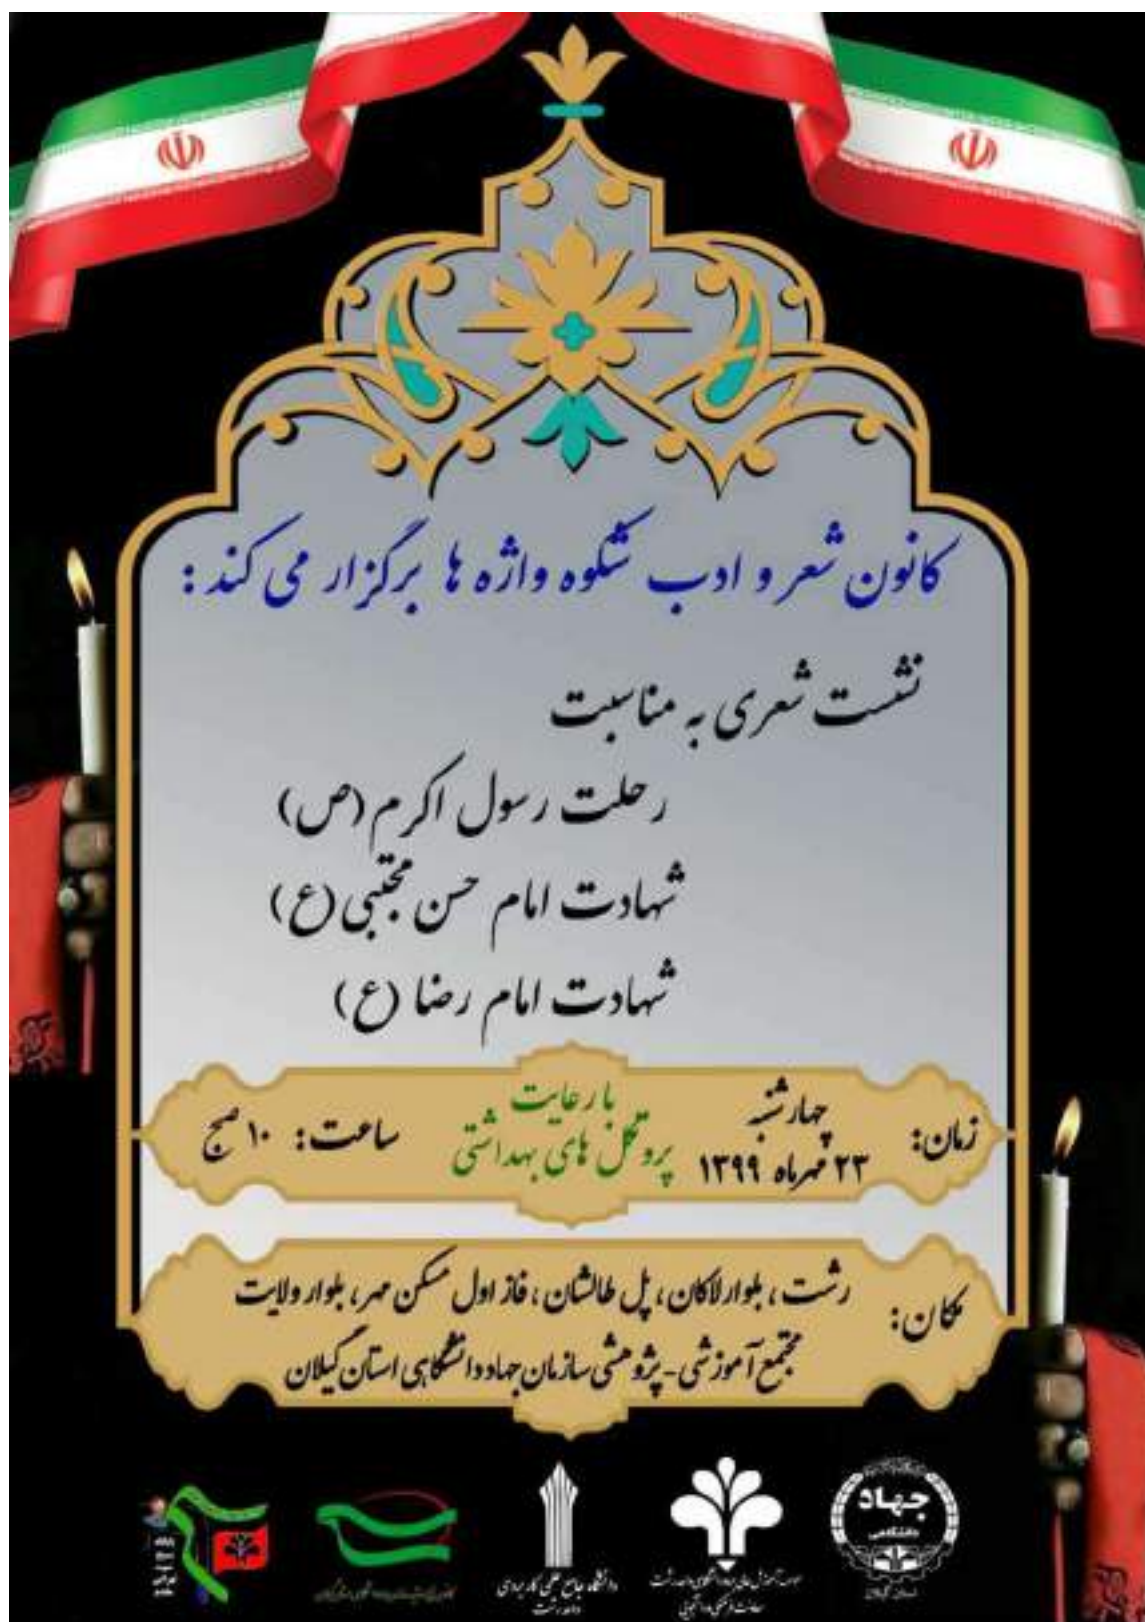 کانون شعر و ادب شکوه واژه ها برگزار می کند:
نشست شعری به مناسبت
رحلت رسول اکرم (ص)
شهادت امام حسن مجتبی (ع)
شهادت امام رضا (ع)
زمان: چهارشنبه
۲۳ مهرماه ۱۳۹۹
با رعایت
پروتکل های بهداشتی
ساعت: ۱۰ صبح
مکان: رشت، بلوار لاکان، پل طالشان، فاز اول مسکن مهر، بلوار ولایت
مجتمع آموزشی - پژوهشی سازمان جهاد دانشگاهی استان گیلان
جهاد
دانشگاهی
استان گیلان
دانشگاه جامع علمی کاربردی
واحد رشت